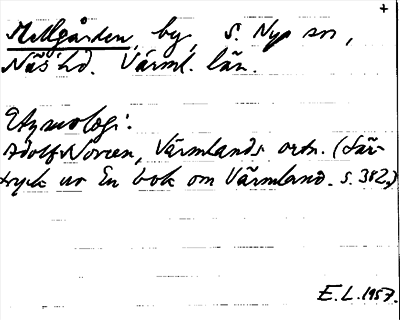 +
Mellgården, by, s. Ny sn,
Näs hd. Värml. län.
Etymologi:
Adolf Noreen, Värmlands ortn. (Sär-
tryck ur En bok om Värmland. s. 382.)
E. L. 1957.